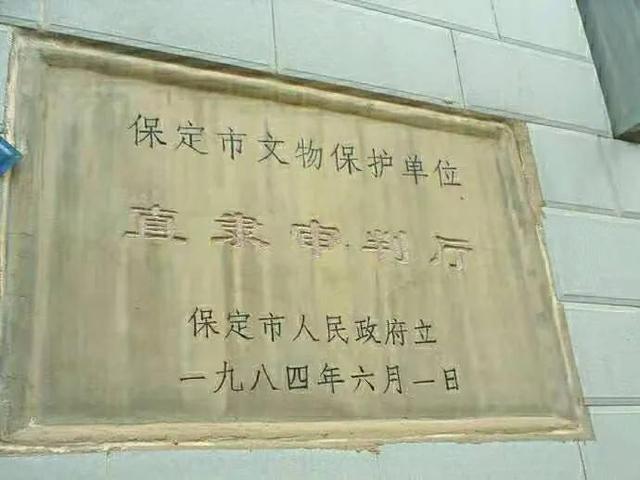 保定市文物保护单位
直隶审判厅
保定市人民政府立
一九八四年六月一日